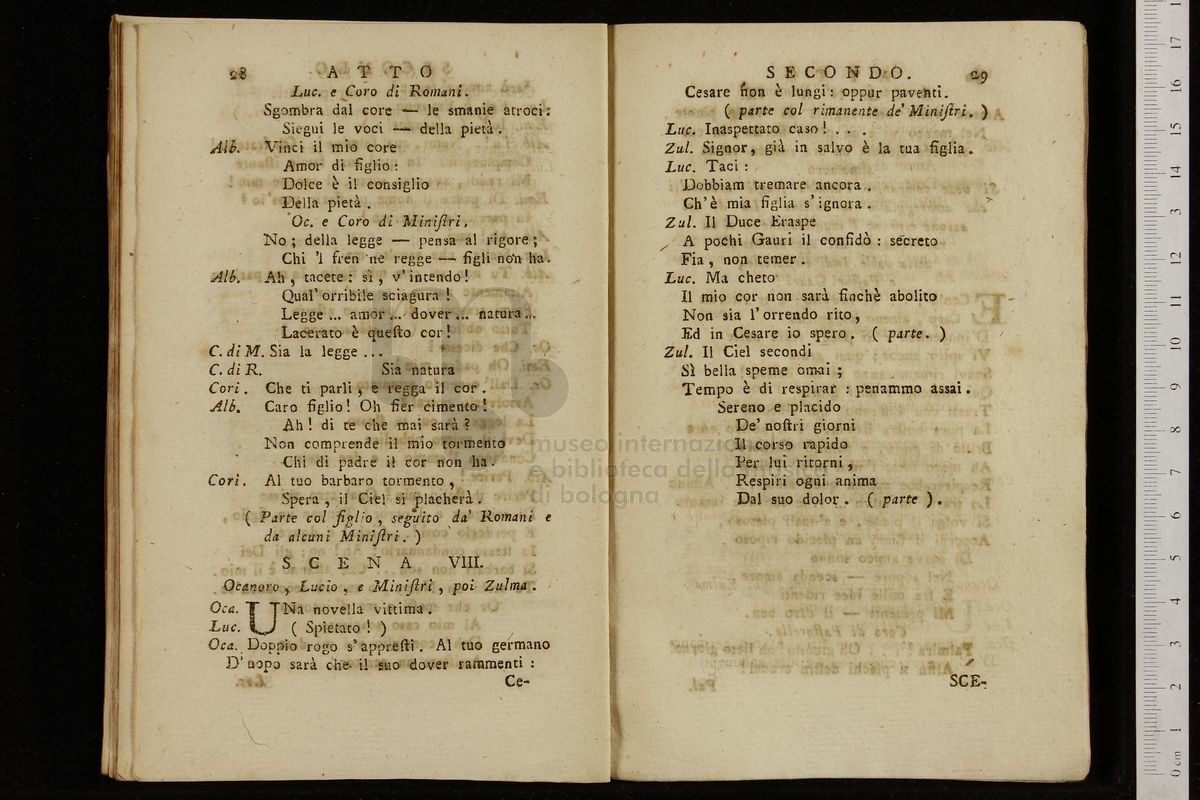 28 ATTO
Luc. e Coro di Romani.
Sgombra dal core — le smanie atroci:
Siegui le voci — della pietà.
Alb. Vinci il mio core
Amor di figlio:
Dolce è il consiglio
Della pietà.
Oc. e Coro di Miniſtri.
No; della legge — pensa al rigore;
Chi 'l fren ne regge — figli non ha.
Alb. Ah, tacete: sì, v' intendo!
Qual' orribile sciagura!
Legge ... amor ... dover ... natura ...
Lacerato è queſto cor!
C. di M. Sia la legge ...
C. di R. Sia natura
Cori. Che ti parli, e regga il cor.
Alb. Caro figlio! Oh fier cimento!
Ah! di te che mai sarà?
Non comprende il mio tormento
Chi di padre il cor non ha.
Cori. Al tuo barbaro tormento,
Spera, il Ciel si placherà.
( Parte col figlio, seguito da' Romani e
da alcuni Miniſtri. )
SCENA VIII.
Ocanoro, Lucio, e Miniſtri, poi Zulma.
Oca. UNa novella vittima.
Luc. ( Spietato! )
Oca. Doppio rogo s' appreſti. Al tuo germano
D' uopo sarà che il suo dover rammenti:
Ce-
SECONDO. 29
Cesare non è lungi: oppur paventi.
( parte col rimanente de' Miniſtri. )
Luc. Inaspettato caso! . . .
Zul. Signor, già in salvo è la tua figlia.
Luc. Taci:
Dobbiam tremare ancora.
Ch' è mia figlia s' ignora.
Zul. Il Duce Eraspe
A pochi Gauri il confidò: secreto
Fia, non temer.
Luc. Ma cheto
Il mio cor non sarà finchè abolito
Non sia l' orrendo rito,
Ed in Cesare io spero. ( parte. )
Zul. Il Ciel secondi
Sì bella speme omai;
Tempo è di respirar: penammo assai.
Sereno e placido
De' noſtri giorni
Il corso rapido
Per lui ritorni,
Respiri ogni anima
Dal suo dolor. ( parte ).
SCE-
museo internazionale
e biblioteca della musica
di bologna
0 cm 1 2 3 4 5 6 7 8 9 10 11 12 13 14 15 16 17